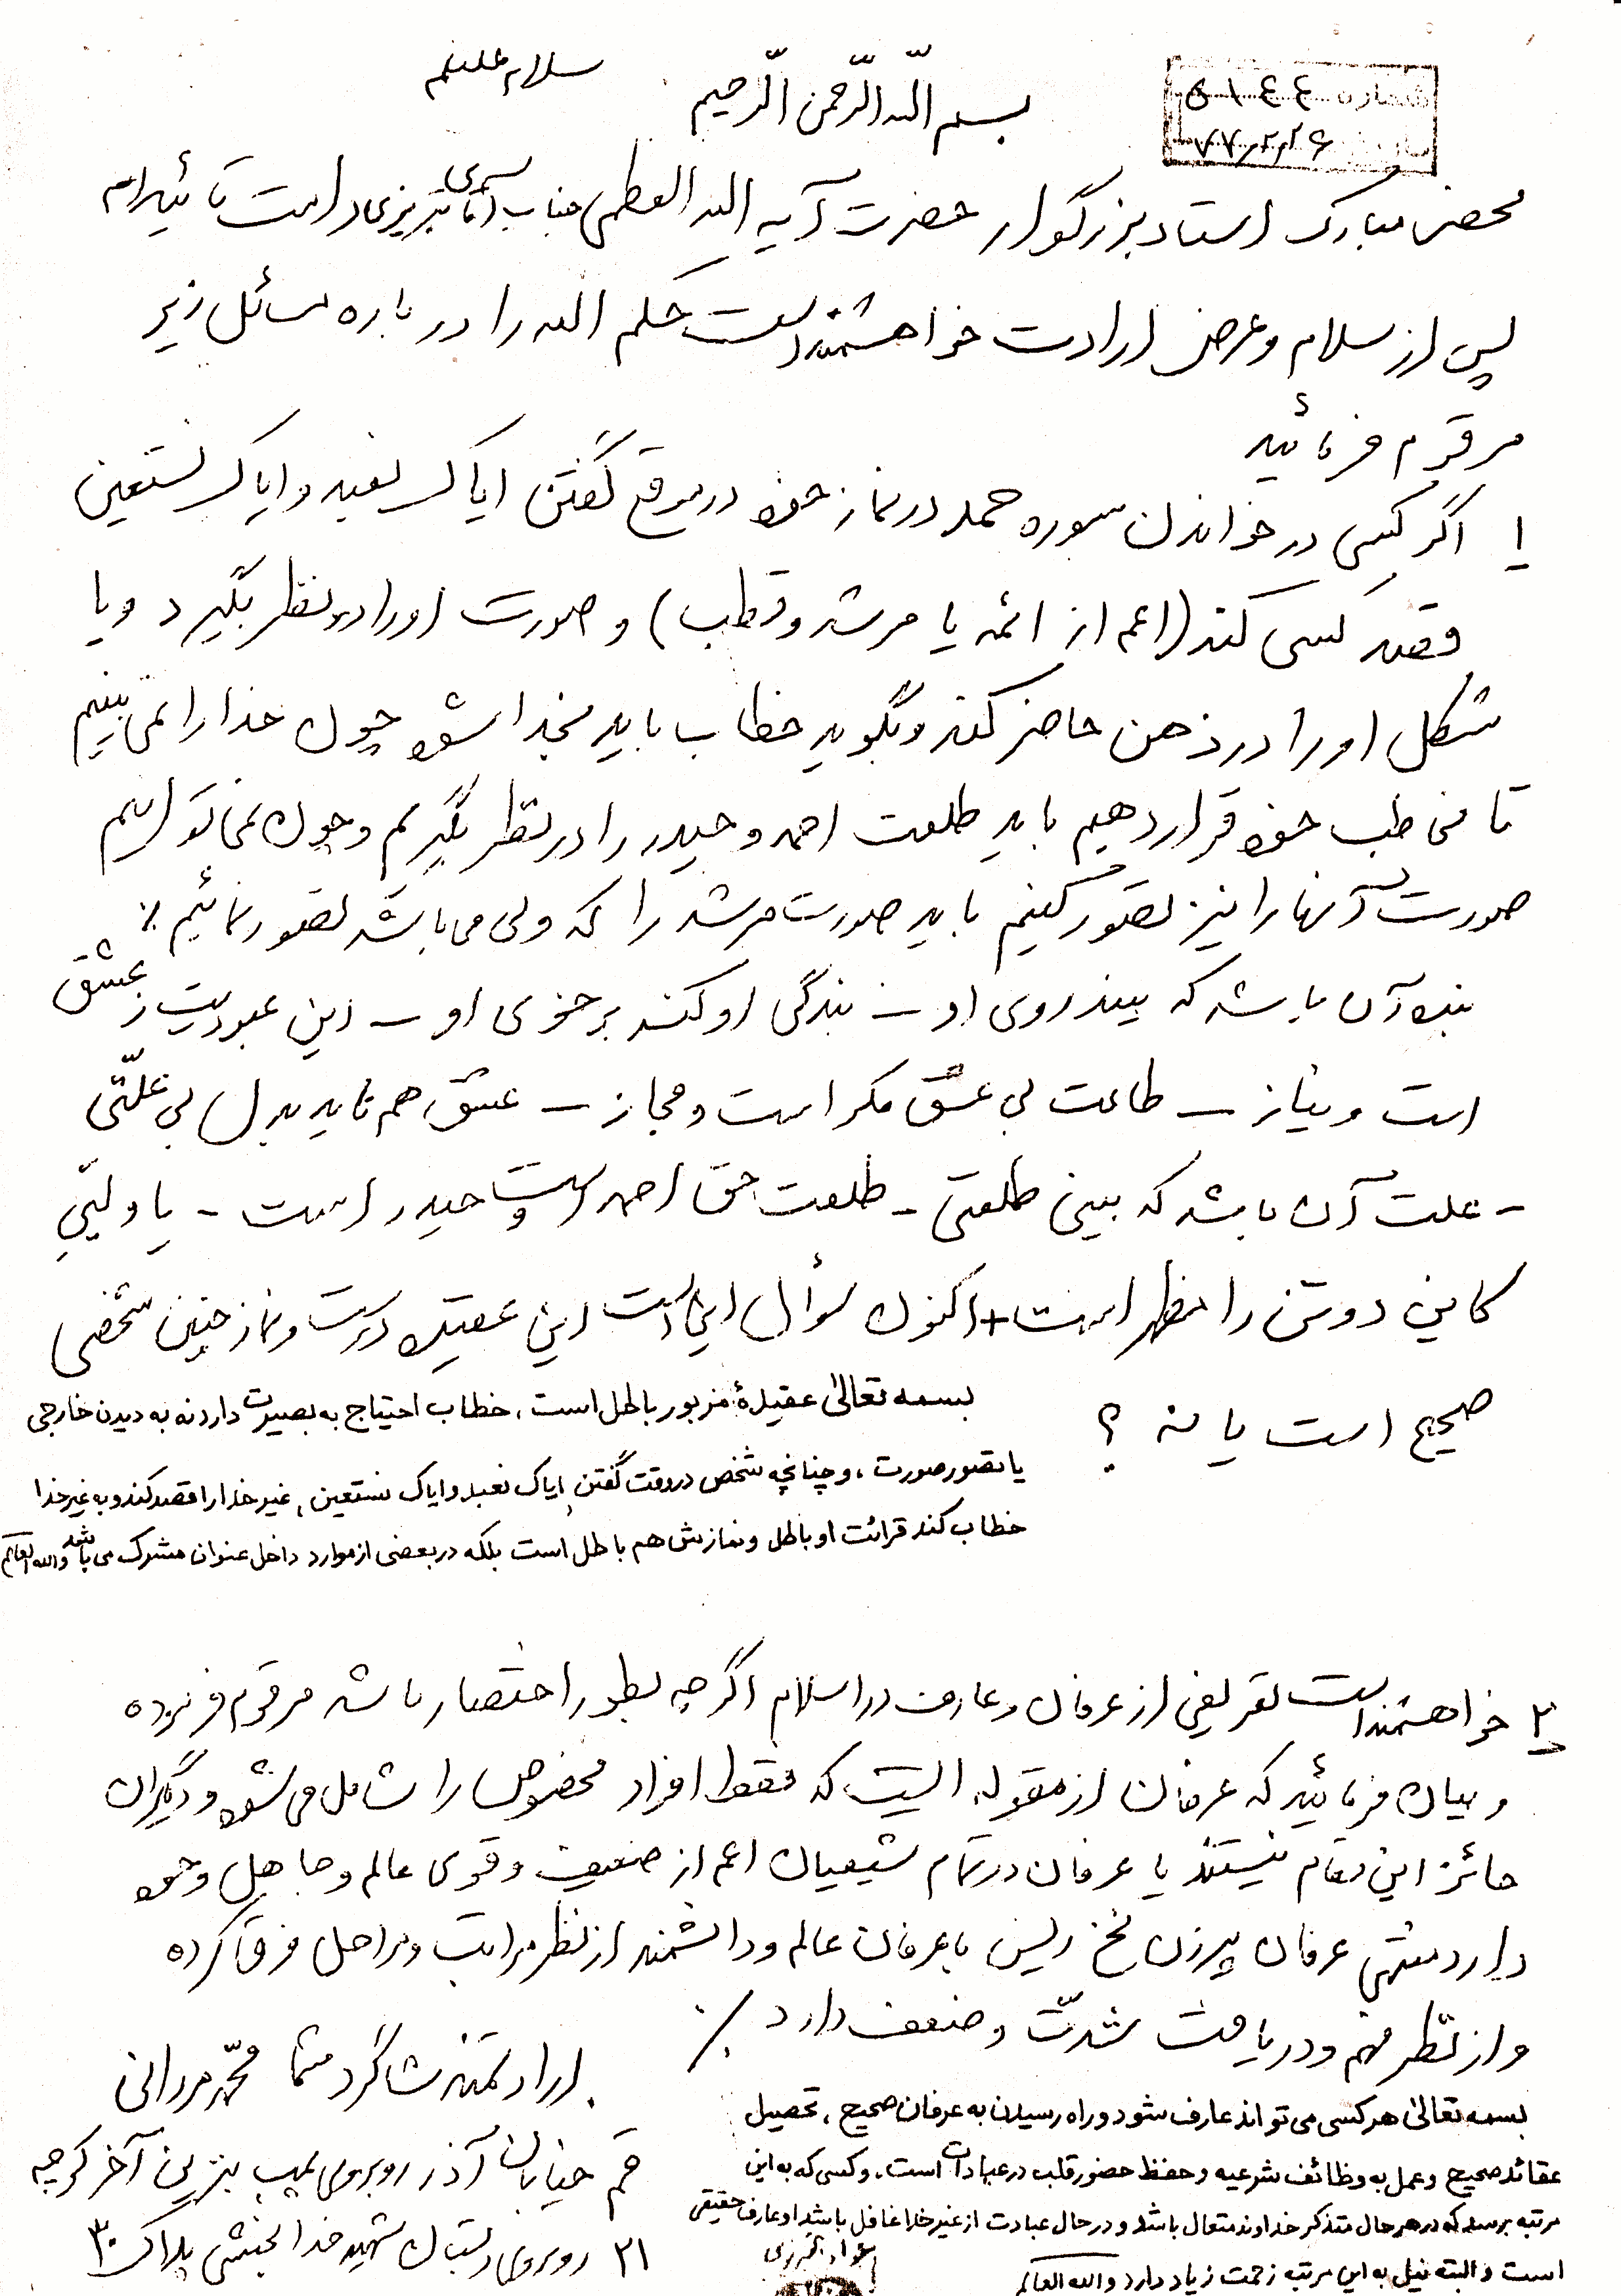 سلام علیکم
بسم اللّه الرّحمن الرّحیم
شماره ٥١٤٤
٧٧/٢/٢٦
محضر مبارک استاد بزرگوار حضرت آیه الله العظمی جناب آقای تبریزی دامت تائیداته
پس از سلام و عرض ارادت خواهشمند است حکم الله را در باره مسائل زیر
مرقوم فرمائید
۱ اگر کسی در خواندن سوره حمد در نماز خود در موقع گفتن ایاک نعبد و ایاک نستعین
قصد کسی کند (اعم از ائمه یا مرشد و قطب) و صورت او را در نظر بگیرد و یا
شکل او را در ذهن حاضر کند و بگوید خطاب باید بخدا شود چون خدا را نمی بینیم
تا مخاطب خود قرار دهیم باید طلعت احمد و حیدر را در نظر بگیریم و چون نمی توانیم
صورت آنها را نیز تصور کنیم باید صورت مرشد را که ولی می باشد تصور نمائیم ٪
بنده آن باشد که بیند روی او – بندگی او کند بر خوی او – این عبودیت ز عشق
است و نیاز – طاعت بی عشق مکر است و مجاز – عشق هم ناید بدل بی علّتی
– علت آن باشد که بینی طلعتی – طلعت حق احمد است و حیدر است – یا ولیّی
کاین دو تن را مظهر است + اکنون سؤال این است این عقیده درست و نماز چنین شخصی
صحیح است یا نه ؟
بسمه تعالی عقیدهٔ مزبور باطل است، خطاب احتیاج به بصیرت دارد نه به دیدن خارجی
یا تصور صورت، و چنانچه شخص در وقت گفتن ایاک نعبد و ایاک نستعین، غیر خدا را قصد کند و به غیر خدا
خطاب کند قرائت او باطل و نمازش هم باطل است بلکه در بعضی از موارد داخل عنوان مشرک می باشد والله العالم
۲ خواهشمند است تعریفی از عرفان و عارف در اسلام اگر چه بطور اختصار باشد مرقوم فرموده
و بیان فرمائید که عرفان از مقوله ایست که فقط افراد مخصوص را شامل می شود و دیگران
حائز این مقام نیستند یا عرفان در تمام شیعیان اعم از ضعیف و قوی عالم و جاهل وجود
دارد منتهی عرفان پیرزن نخ ریس با عرفان عالم و دانشمند از نظر مراتب و مراحل فرق کرده
و از نظر فهم و دریافت شدّت و ضعف دارد ٪
ارادتمند شاگرد شما محمّد مردانی
قم خیابان آذر روبروی پمپ بنزین آخر کوچه
۲۱ روبروی دبستان شهید خدا بخشی پلاک ۳۰
بسمه تعالی هر کسی می تواند عارف شود و راه رسیدن به عرفان صحیح، تحصیل
عقائد صحیح و عمل به وظائف شرعیه و حفظ حضور قلب در عبادات است، و کسی که به این
مرتبه برسد که در هر حال متذکر خداوند متعال باشد و در حال عبادت از غیر خدا غافل باشد او عارف حقیقی
است والبته نیل به این مرتبه زحمت زیاد دارد والله العالم
جواد تبریزی